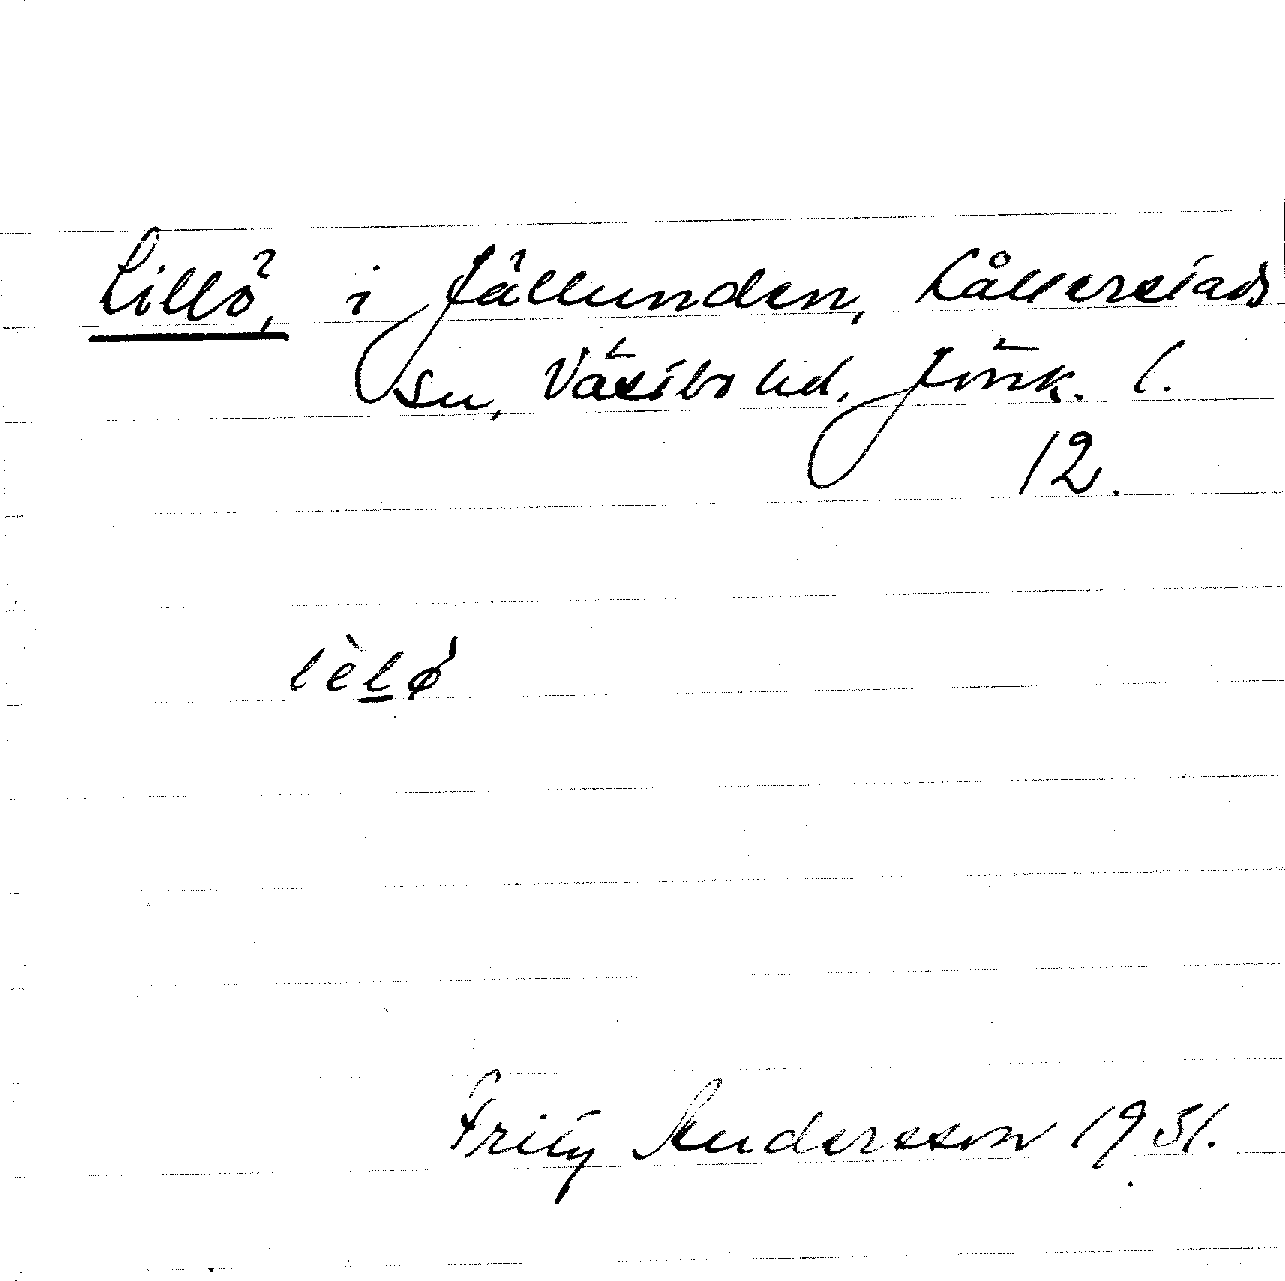 Lillö, i Jällunden, Kållerstads
sn, Västbo hd, Jönk. l.
12.
lèlǿ
Fritz Andersson 1931.